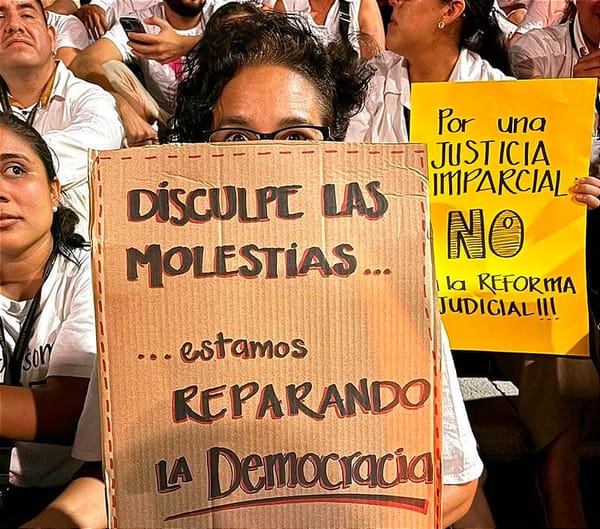 DISCULPE LAS
MOLESTIAS...
...estamos
REPARANDO
LA Democracia
Por una
JUSTICIA
IMPARCIAL
NO
la REFORMA
JUDICIAL!!!